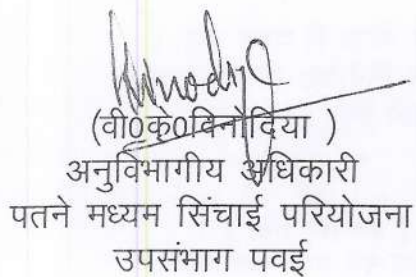 (वी0के0विनोदिया )
अनुविभागीय अधिकारी
पतने मध्यम सिंचाई परियोजना
उपसंभाग पवई